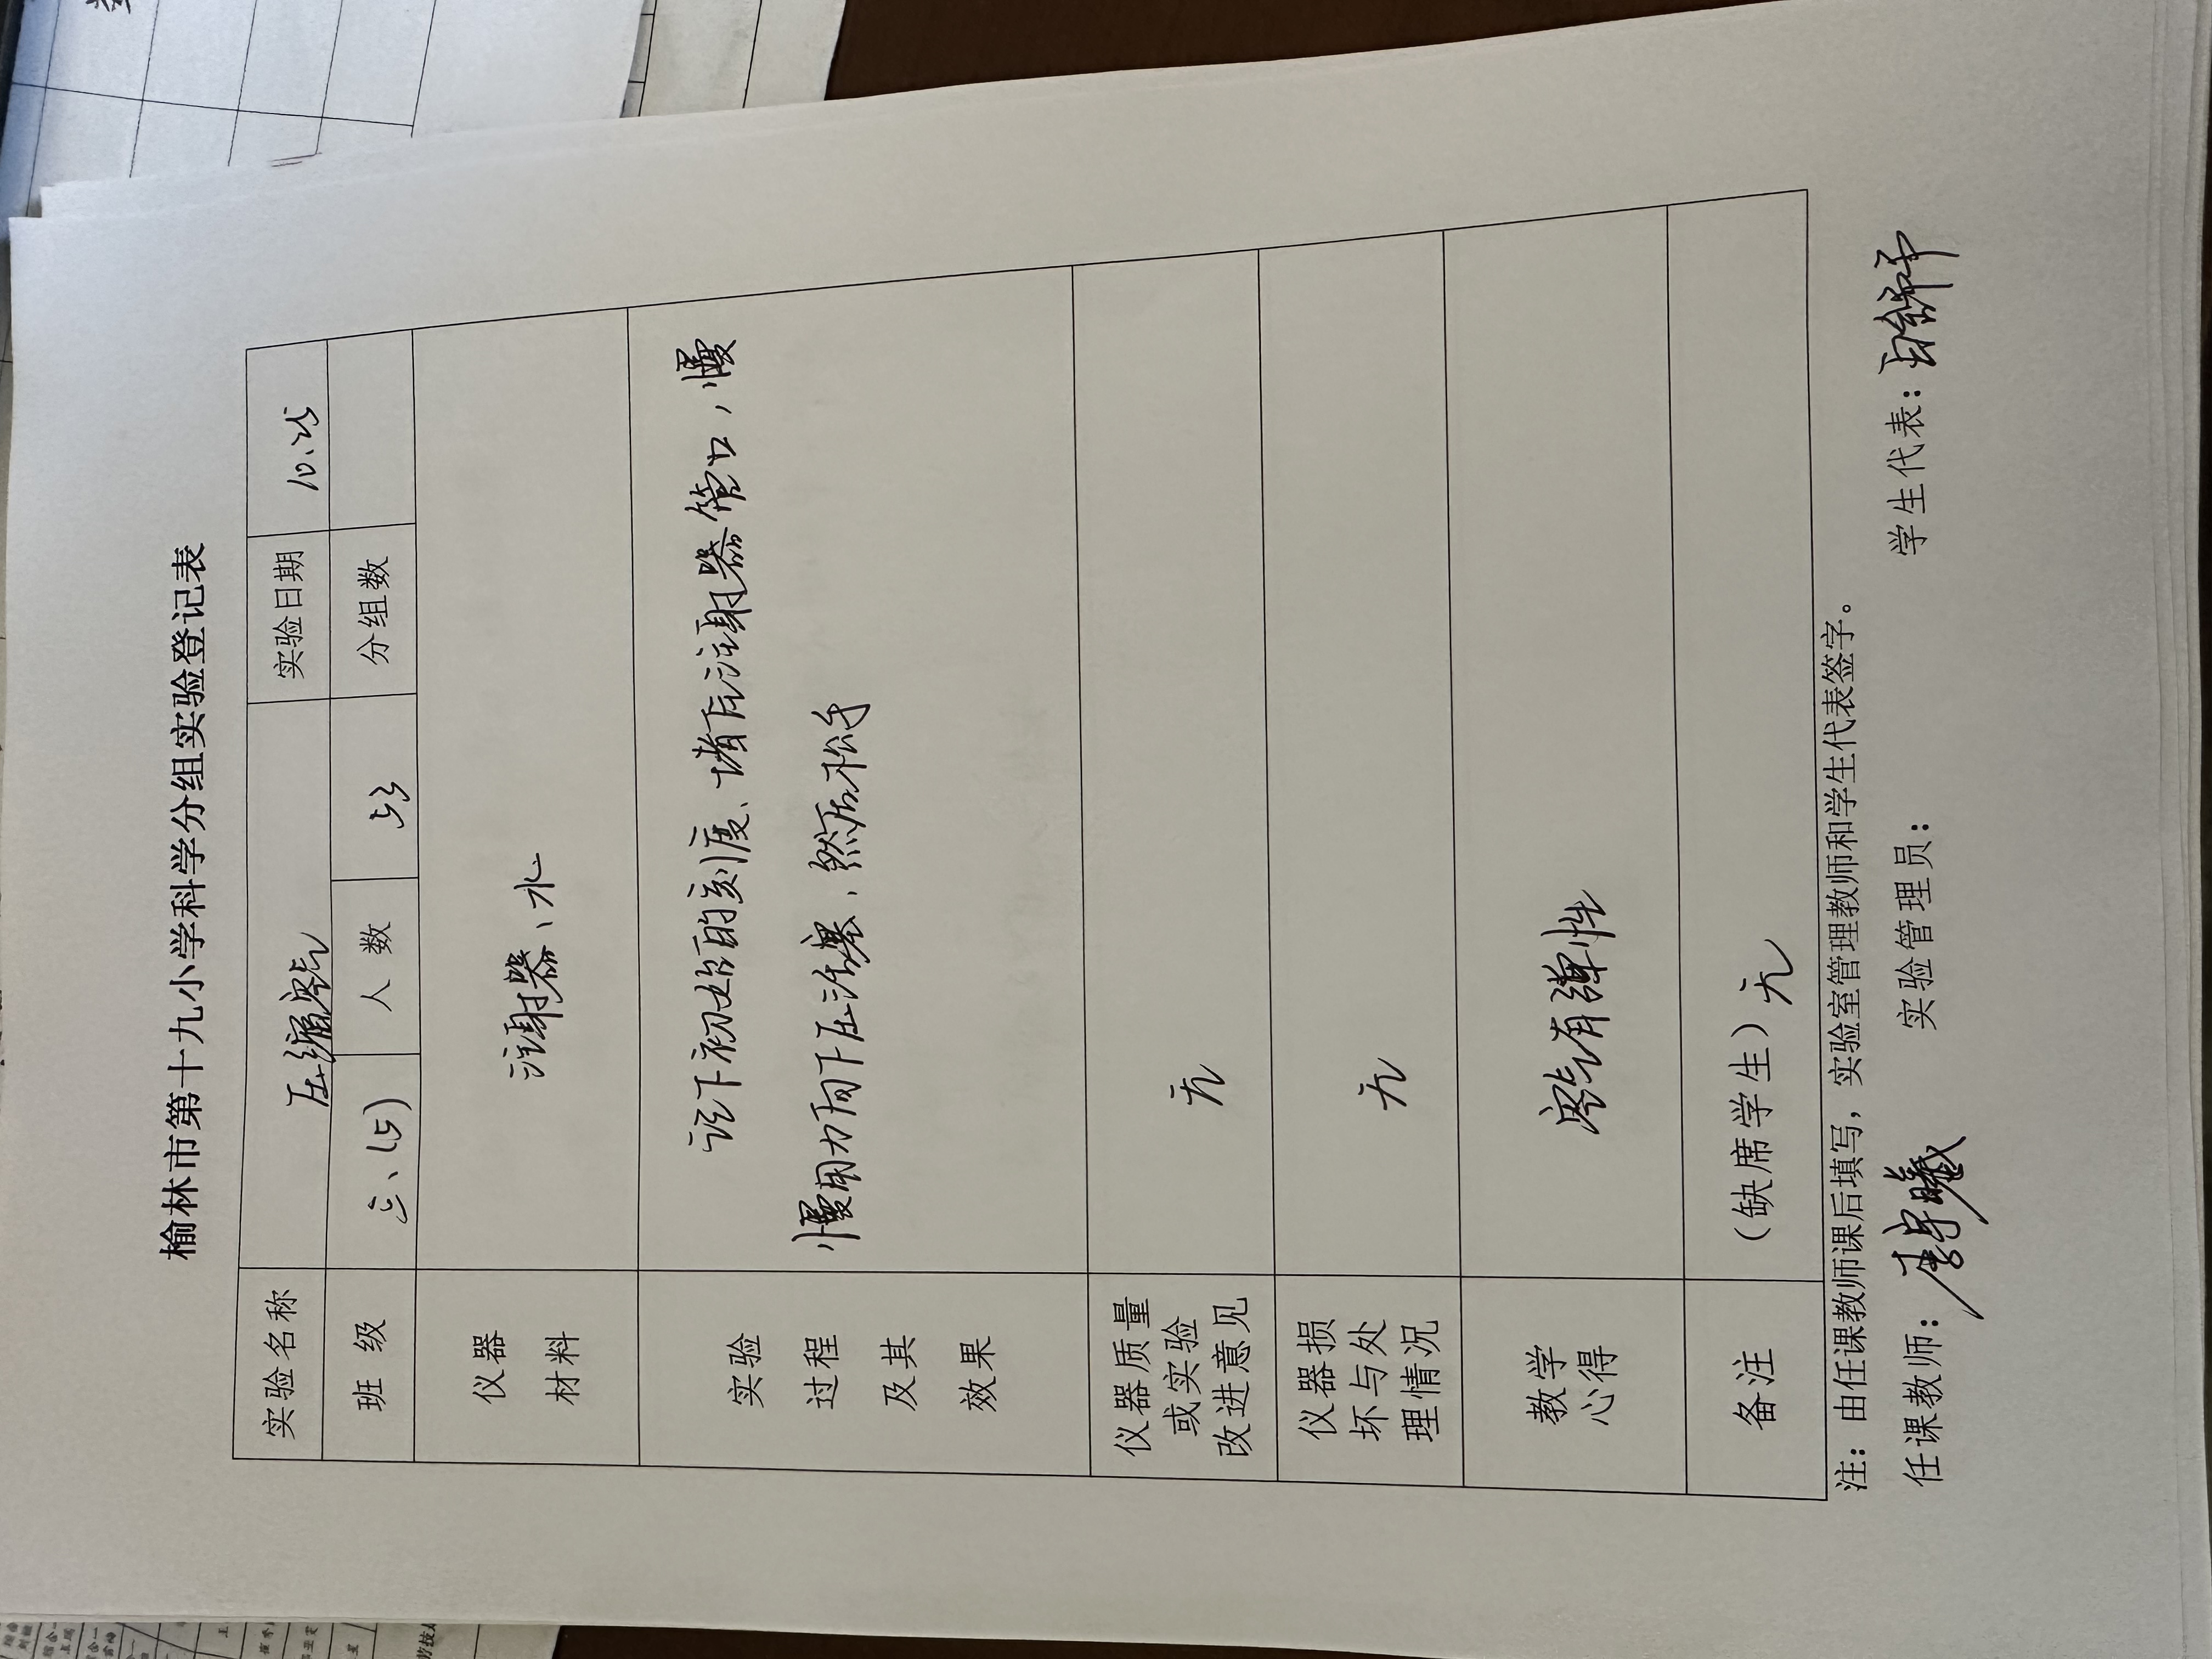 榆林市第十九小学科学分组实验登记表
实验名称 压缩空气 实验日期 10.25
班级 三、(5) 人数 53 分组数
仪器材料 注射器、水
实验过程及其效果 记下初始的刻度、堵住注射器管口,慢
慢用力向下压活塞、然后松手
仪器质量或实验改进意见 无
仪器损坏与处理情况 无
教学心得 空气有弹性
备注 (缺席学生)无
注:由任课教师课后填写,实验室管理教师和学生代表签字。
任课教师: 实验管理员: 学生代表: